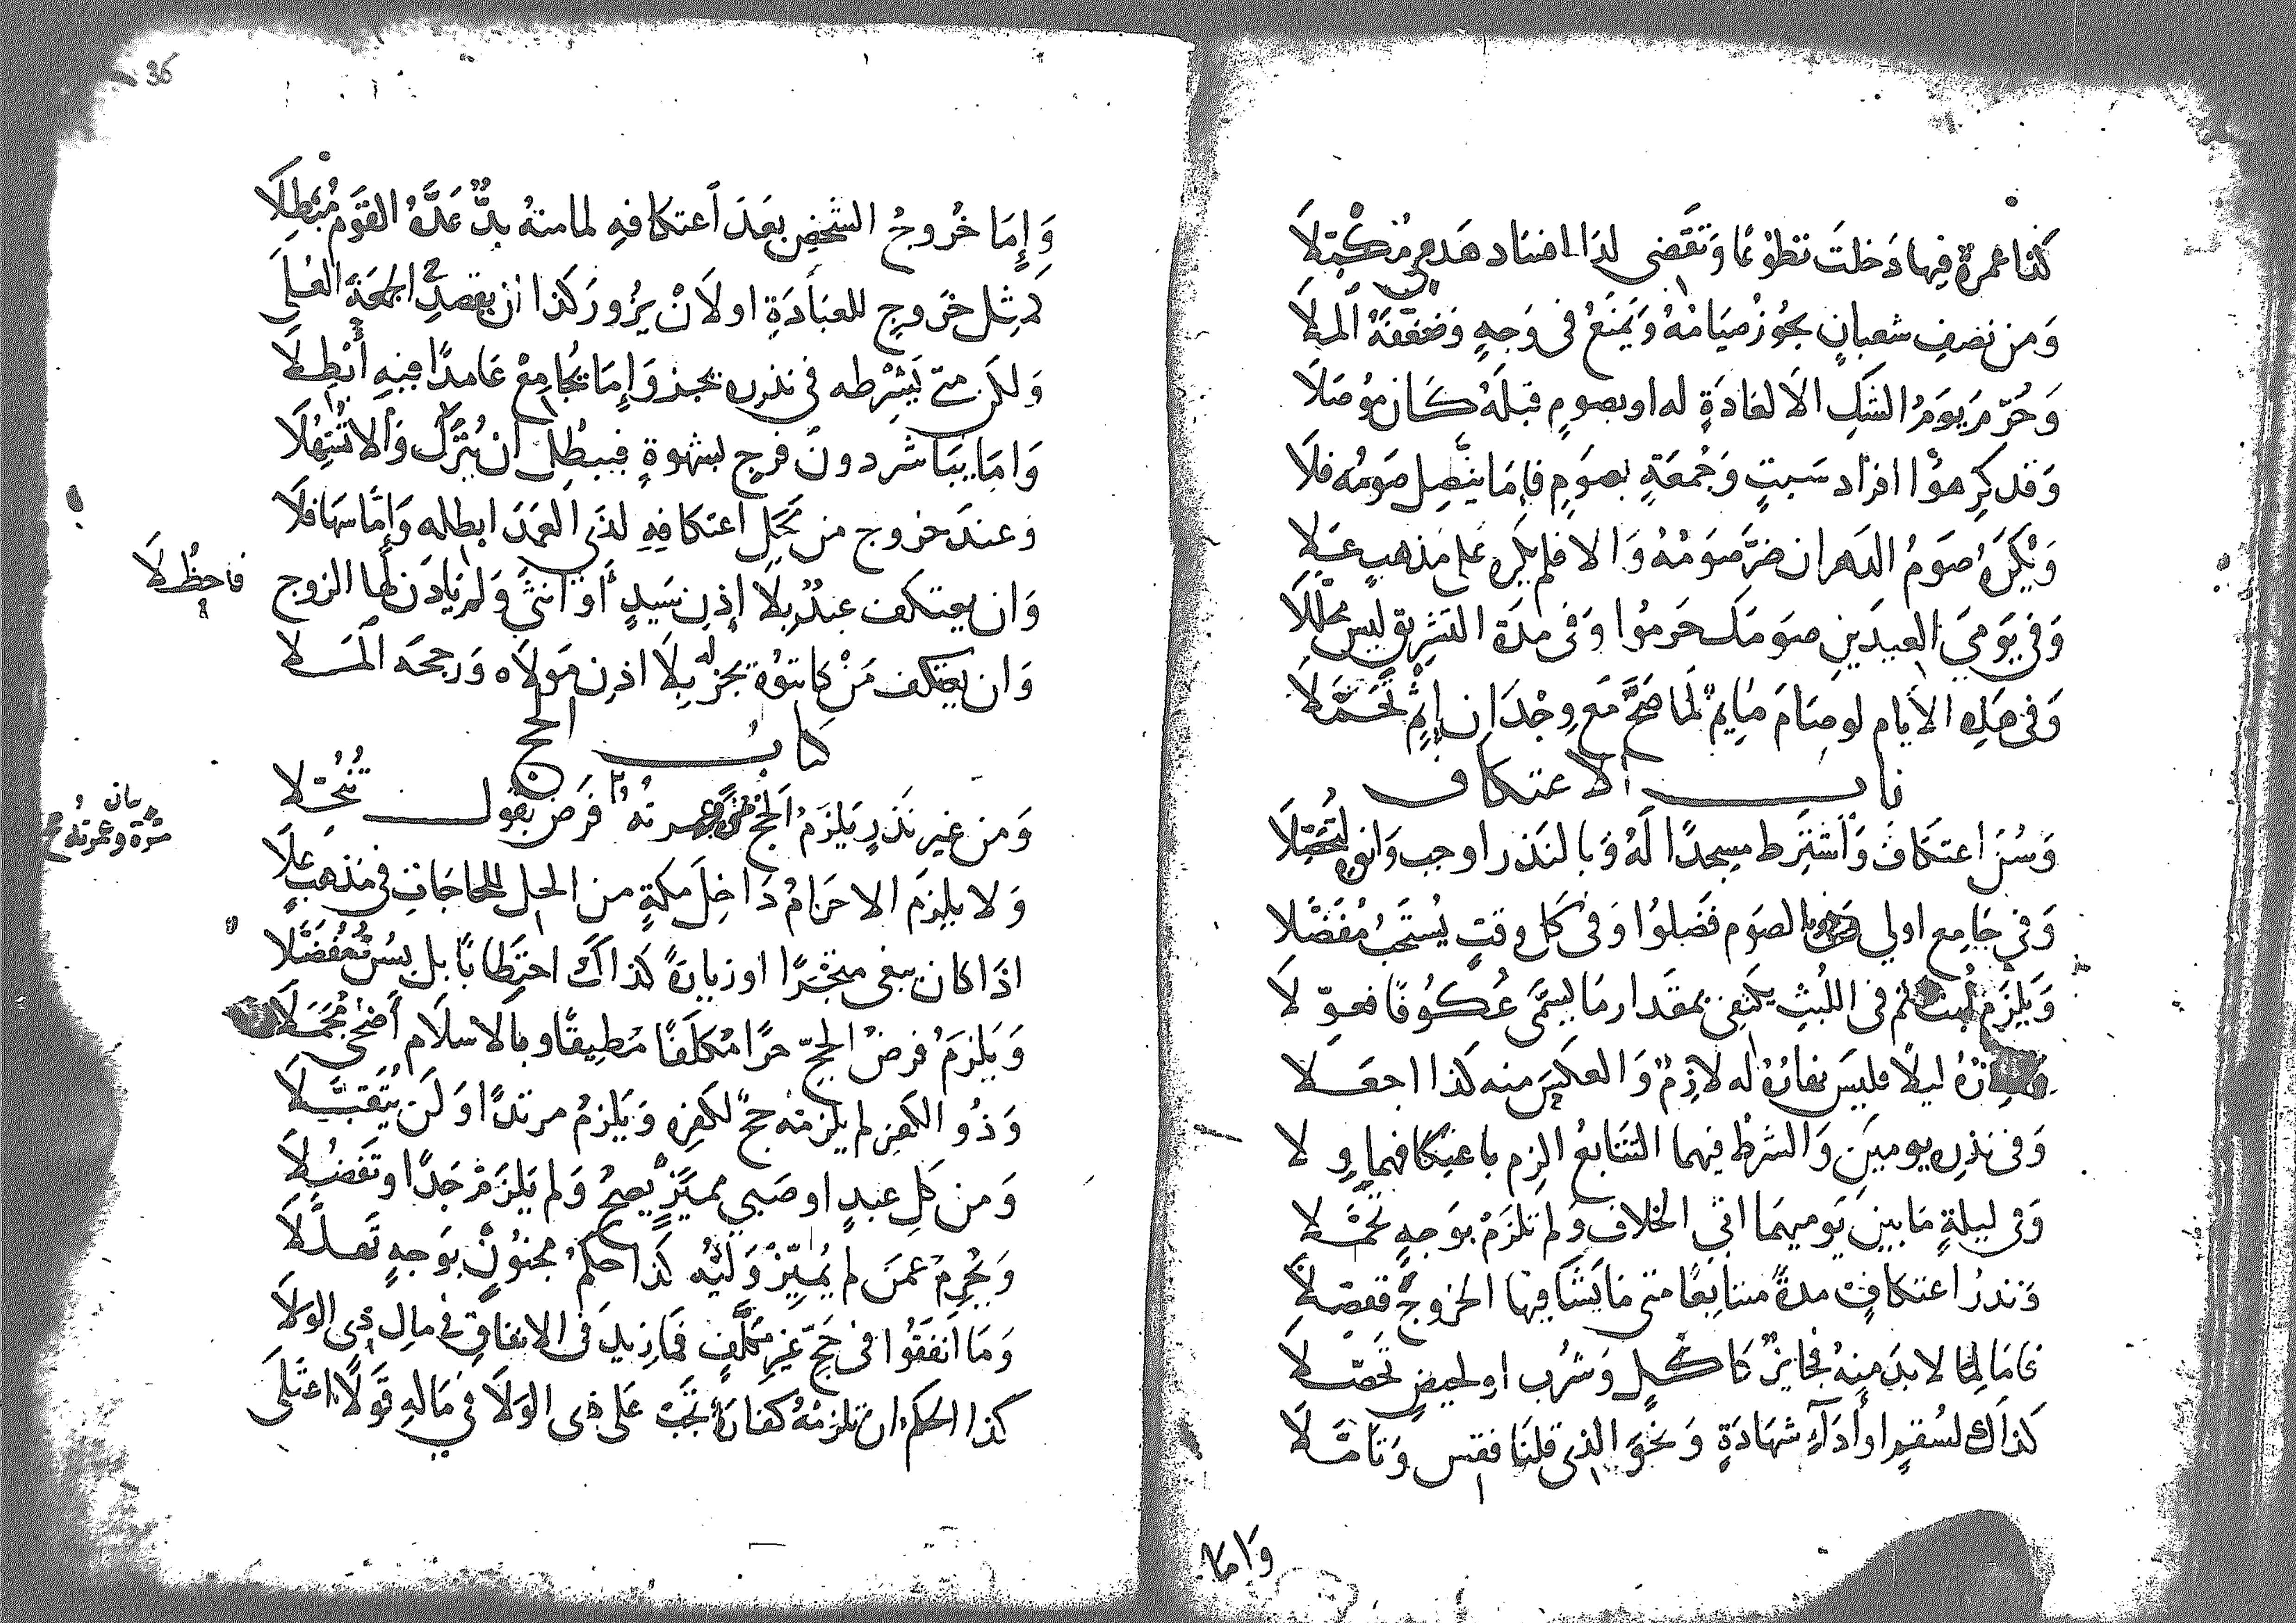 كذا عمرة فيها دخلت تطوعا وتقضى لذا افساد هدي مكبلا
ومن نصف شعبان يجوز صيامه ويمنع في وجه وضعفه الملا
وحرم يوم الشك الا لعادة له او بصوم قبله كان موصلا
وقد كرهوا افراد سبت وجمعة بصوم فاما يتصل صومه فلا
ويكره صوم الدهر ان ضر صومه والا فلم يكره على مذهب علا
وفي يومي العيدين صومك حرموا وفى مدة التشريق ليس محللا
وفى هذه الأيام لو صام صايم لما صح مع وجدان إثم تحملا
باب الاعتكاف
وسن اعتكاف واشترط مسجدا له وبالنذر اوجب وانوه لتحصلا
وفي جامع اولى وبالصوم فضلوا وفى كل وقت يستحب مفضلا
ويلزم لبث ثم فى اللبث يكتفى بمقدار ما يسمى عكوفا فعولا
ليلا فليس نهاره له لازم والعكس منه كذا اجعلا
وفى نذره يومين والشرط فيهما التتابع الزم باعتكافهما ولا
وفى ليلة ما بين يوميهما اتى الخلاف ولم تلزم بوجه تحملا
ونذر اعتكاف مدة متتابعا متى ما يشا فيها الخروج ففصلا
فاما لما لا بد منه فجايز كاكل وشرب او لحيض تحصلا
كذاك لسقم او أداء شهادة ونحو الذي قلنا فقس وتاملا
واما
36
وإما خروج الشخص بعد اعتكافه لما منه بد عده القوم مبطلا
كمثل خروج للعبادة او لان يزور كذا ان يقصد الجمعة العلى
ولكن متى يشرطه في نذره يجز وإما يجامع عامدا فيه أبطلا
واما يباشر دون فرج بشهوة فيبطل ان ينزل والا فلا
وعند خروج من محل اعتكافه لذى العمد ابطله وإما سها فلا
وان يعتكف عبد بلا إذن سيد أو انثى ولم يأذن لها الزوج فاحظلا
وان يعتكف من كاتبوه يجز له بلا اذن مولاه ورجحه الملا
كتاب الحج
ومن غير نذر يلزم الحج مرة وعمرته فرض بقول تنخلا
بيان
مرة وعمرته
ولا يلزم الاحرام داخل مكة من الحل للحاجات في مذهب علا
اذا كان يبغى متجرا او زيارة كذاك احتطابا بل يسن مفضلا
ويلزم فرض الحج حرا مكلفا مطيقا وبالاسلام أضحى مجملا
وذو الكفر لم يلزمه حج لكفره ويلزم مرتدا ولن يتقبلا
ومن كل عبد او صبي مميز يصح ولم يلزم جدا وتفضلا
ويحرم عمن لم يميز وليه كذا حكم مجنون بوجه تعدلا
وما انفقوا فى حج غير مكلف فما زيد فى الانفاق في مال ذى الولا
كذا الحكم ان تلزمه كفارة تجب على ذى الولا في ماله قولا اعتلى